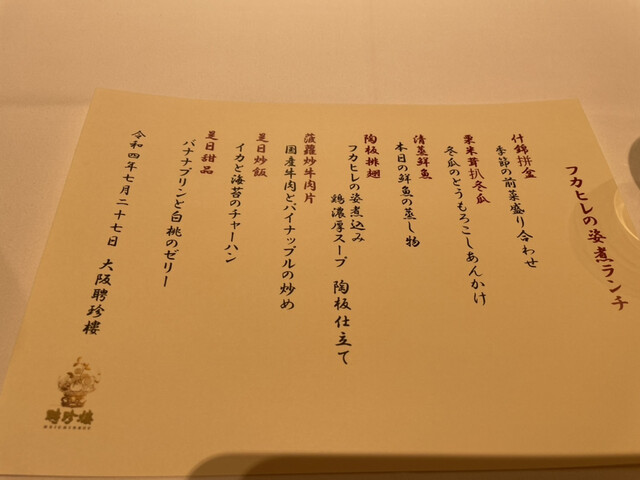 フカヒレの姿煮ランチ
什錦拼盆
季節の前菜盛り合わせ
粟米茸扒冬瓜
冬瓜のとうもろこしあんかけ
清蒸鮮魚
本日の鮮魚の蒸し物
陶板排翅
フカヒレの姿煮込み
鶏濃厚スープ 陶板仕立て
菠蘿炒牛肉片
国産牛肉とパイナップルの炒め
是日炒飯
イカと海苔のチャーハン
是日甜品
バナナプリンと白桃のゼリー
令和四年七月二十七日 大阪聘珍樓
聘珍樓
HEICHINROU